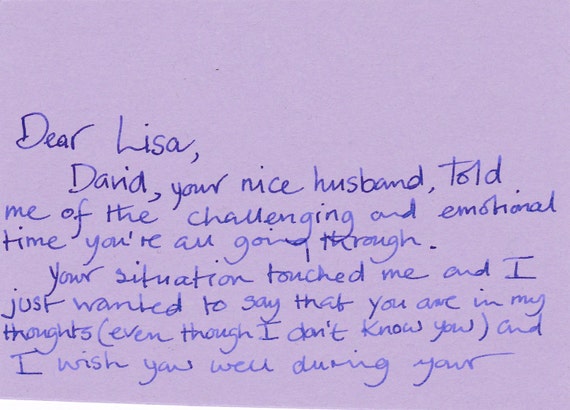 Dear Lisa,
David, your nice husband, told
me of the challenging and emotional
time you're all going through.
Your situation touched me and I
just wanted to say that you are in my
thoughts (even though I don't know you) and
I wish you well during your